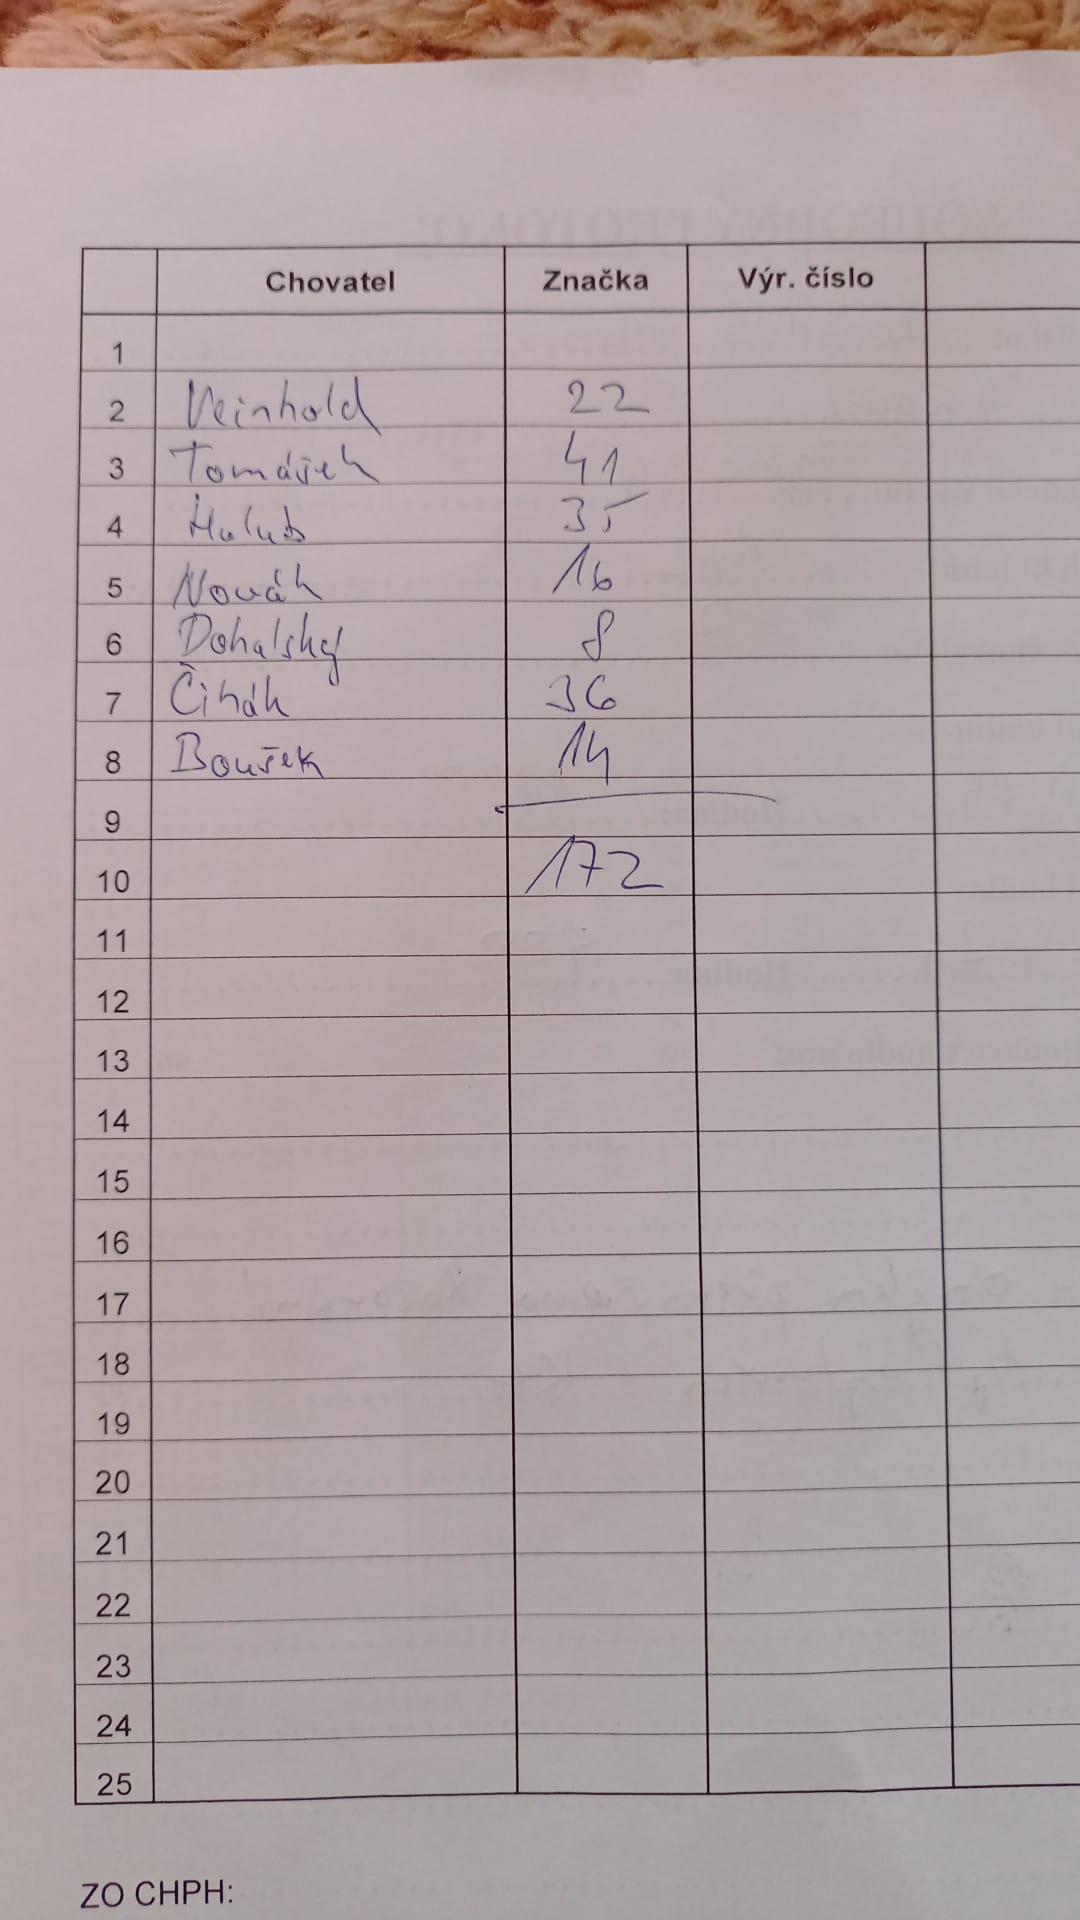 Chovatel Značka Výr. číslo
1
2 Veinhold 22
3 Tomášek 41
4 Holub 35
5 Novák 16
6 Dohalský 8
7 Čihák 36
8 Boušek 14
9
10 172
11
12
13
14
15
16
17
18
19
20
21
22
23
24
25
ZO CHPH: